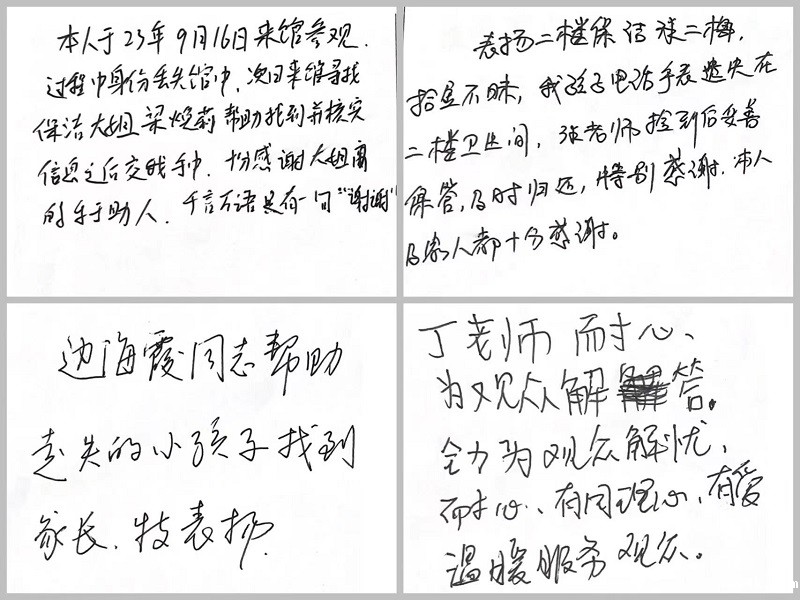 本人于23年9月16日来馆参观.
过程中身份丢失馆中,次日来馆寻找
保洁大姐梁烧莉帮助找到并核实
信息之后交我手中.十分感谢大姐高
的乐于助人.千言万语只有一句"谢谢"
表扬二楼保洁张二梅,
拾金不昧,我孩子电话手表遗失在
二楼卫生间,张老师捡到后妥善
保管,及时归还,特别感谢.本人
及家人都十分感谢。
边海霞同志帮助
走失的小孩子找到
家长.特表扬.
丁老师 耐心、
为观众解 答。
全力为观众解忧,
耐心、有同理心,有爱
温暖服务观众。